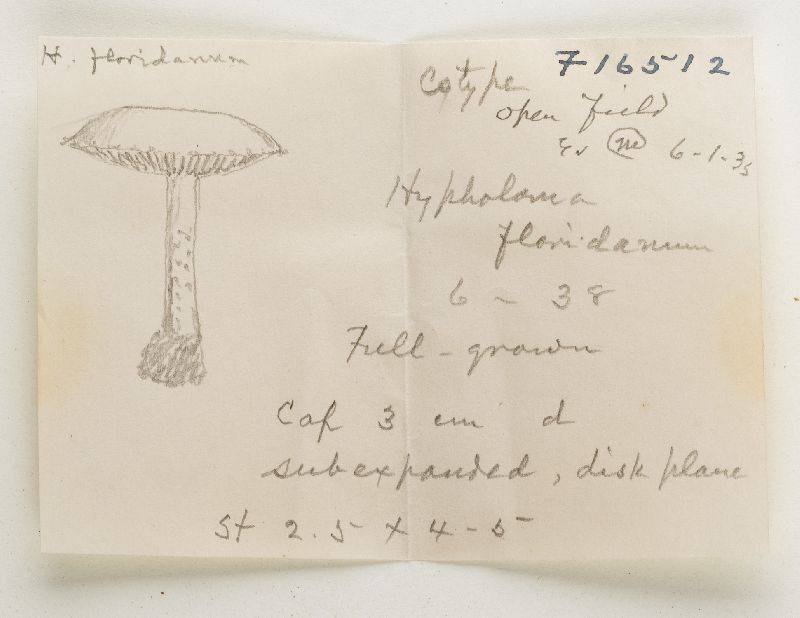 H. floridanum
Cotype F16512
open field
(m) 6-1-35
Hypholoma
floridanum
6 - 38
Full-grown
Cap 3 cm d
subexpanded, disk plane
St 2.5 x 4-5